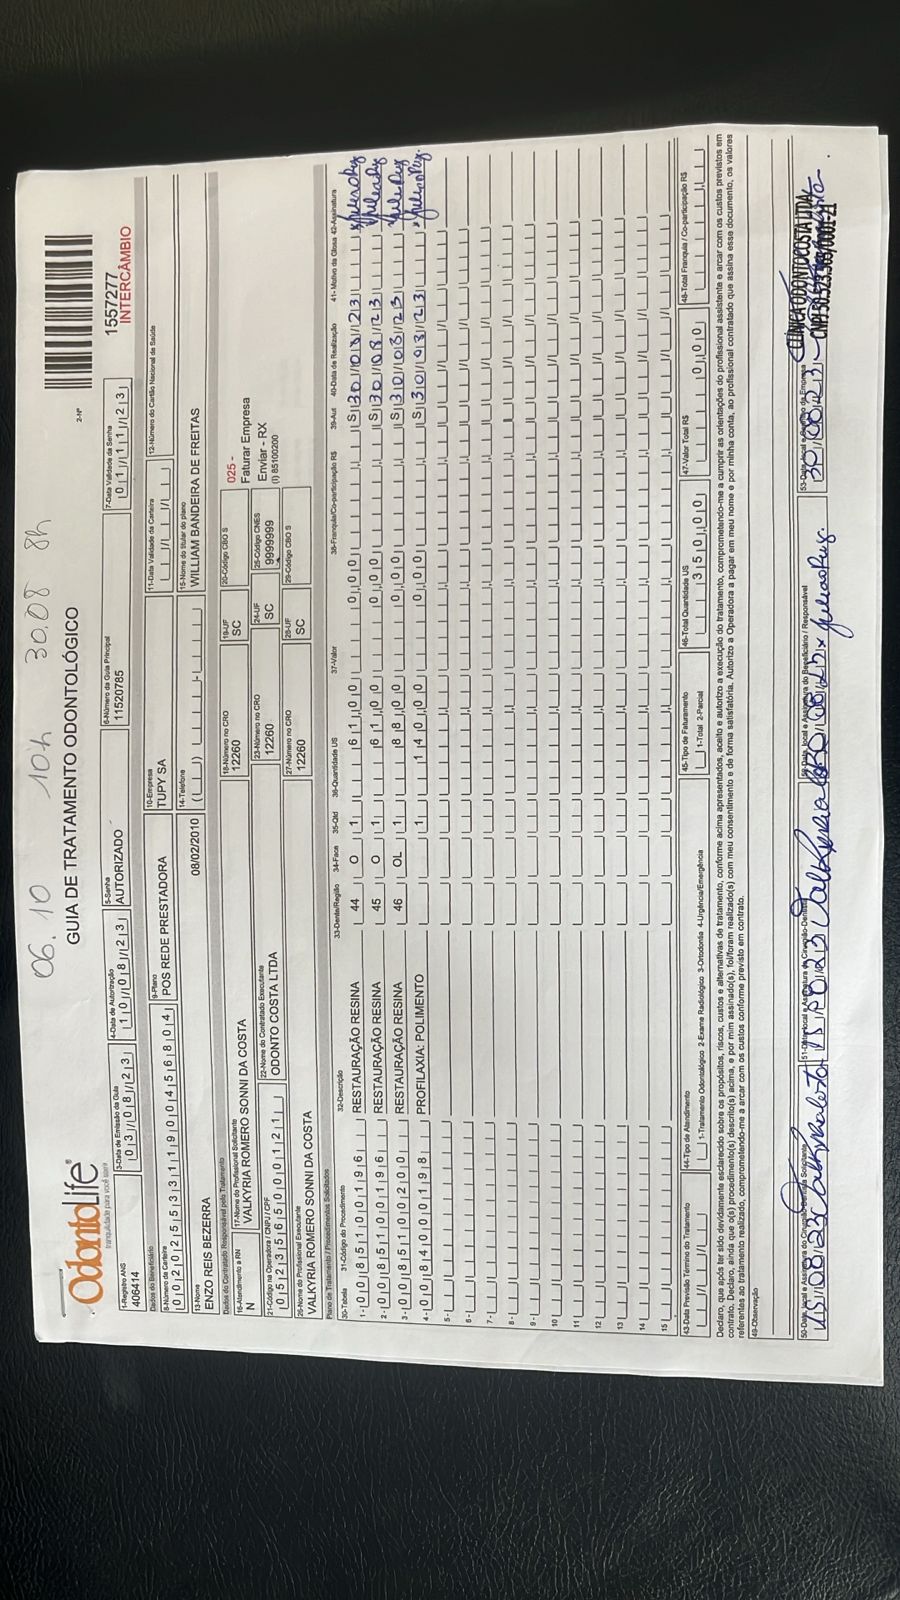 06.10 10h 30.08 8h
OdontoLife®
tranquilidade para você sorrir
GUIA DE TRATAMENTO ODONTOLÓGICO
2-Nº
1557277
INTERCÂMBIO
1-Registro ANS
406414
3-Data de Emissão da Guia
03/08/23
4-Data de Autorização
10/08/23
5-Senha
AUTORIZADO
6-Número da Guia Principal
11520785
7-Data Validade da Senha
01/11/23
Dados do Beneficiário
8-Número da Carteira
00202553311900456804
9-Plano
POS REDE PRESTADORA
10-Empresa
TUPY SA
11-Data Validade da Carteira
12-Número do Cartão Nacional de Saúde
13-Nome
ENZO REIS BEZERRA
08/02/2010
14-Telefone
15-Nome do titular do plano
WILLIAM BANDEIRA DE FREITAS
Dados do Contratado Responsável pelo Tratamento
16-Atendimento a RN
N
17-Nome do Profissional Solicitante
VALKYRIA ROMERO SONNI DA COSTA
18-Número no CRO
12260
19-UF
SC
20-Código CBO S
025 -
Faturar Empresa
Enviar - RX
(I) 85100200
21-Código na Operadora / CNPJ / CPF
22-Nome do Contratado Executante
ODONTO COSTA LTDA
23-Número no CRO
12260
24-UF
SC
25-Código CNES
9999999
26-Nome do Profissional Executante
VALKYRIA ROMERO SONNI DA COSTA
27-Número no CRO
12260
28-UF
SC
29-Código CBO S
Plano de Tratamento / Procedimentos Solicitados
30-Tabela 31-Código do Procedimento 32-Descrição 33-Dente/Região 34-Face 35-Qtd 36-Quantidade US 37-Valor 38-Franquia/Co-participação R$ 39-Aut 40-Data de Realização 41- Motivo da Glosa 42-Assinatura
1- 00 85100196 RESTAURAÇÃO RESINA 44 O 1 61,00 0,00 S 30/08/23
2- 00 85100196 RESTAURAÇÃO RESINA 45 O 1 61,00 0,00 S 30/08/23
3- 00 85100200 RESTAURAÇÃO RESINA 46 OL 1 88,00 0,00 S 30/08/23
4- 00 84000198 PROFILAXIA: POLIMENTO 1 140,00 0,00 S 30/08/23
5 -
6 -
7 -
8 -
9 -
10
11
12
13
14
15
43-Data Previsão Término do Tratamento
44-Tipo de Atendimento
1-Tratamento Odontológico 2-Exame Radiológico 3-Ortodontia 4-Urgência/Emergência
45-Tipo de Faturamento
1-Total 2-Parcial
46-Total Quantidade US
350,00
47-Valor Total R$
0,00
48-Total Franquia / Co-participação R$
Declaro, que após ter sido devidamente esclarecido sobre os propósitos, riscos, custos e alternativas de tratamento, conforme acima apresentados, aceito e autorizo a execução do tratamento, comprometendo-me a cumprir as orientações do profissional assistente e arcar com os custos previstos em
contrato. Declaro, ainda que o(s) procedimento(s) descrito(s) acima, e por mim assinado(s), foi/foram realizado(s) com meu consentimento e de forma satisfatória. Autorizo a Operadora a pagar em meu nome e por minha conta, ao profissional contratado que assina esse documento, os valores
referentes ao tratamento realizado, comprometendo-me a arcar com os custos conforme previsto em contrato.
49-Observação
50-Data, local e Assinatura do Cirurgião-Dentista Solicitante
51-Data, local e Assinatura do Cirurgião-Dentista
52-Data, local e Assinatura do Beneficiário / Responsável
53-Data, local e Carimbo da Empresa
30/08/23
CLINICA ODONTO COSTA LTDA